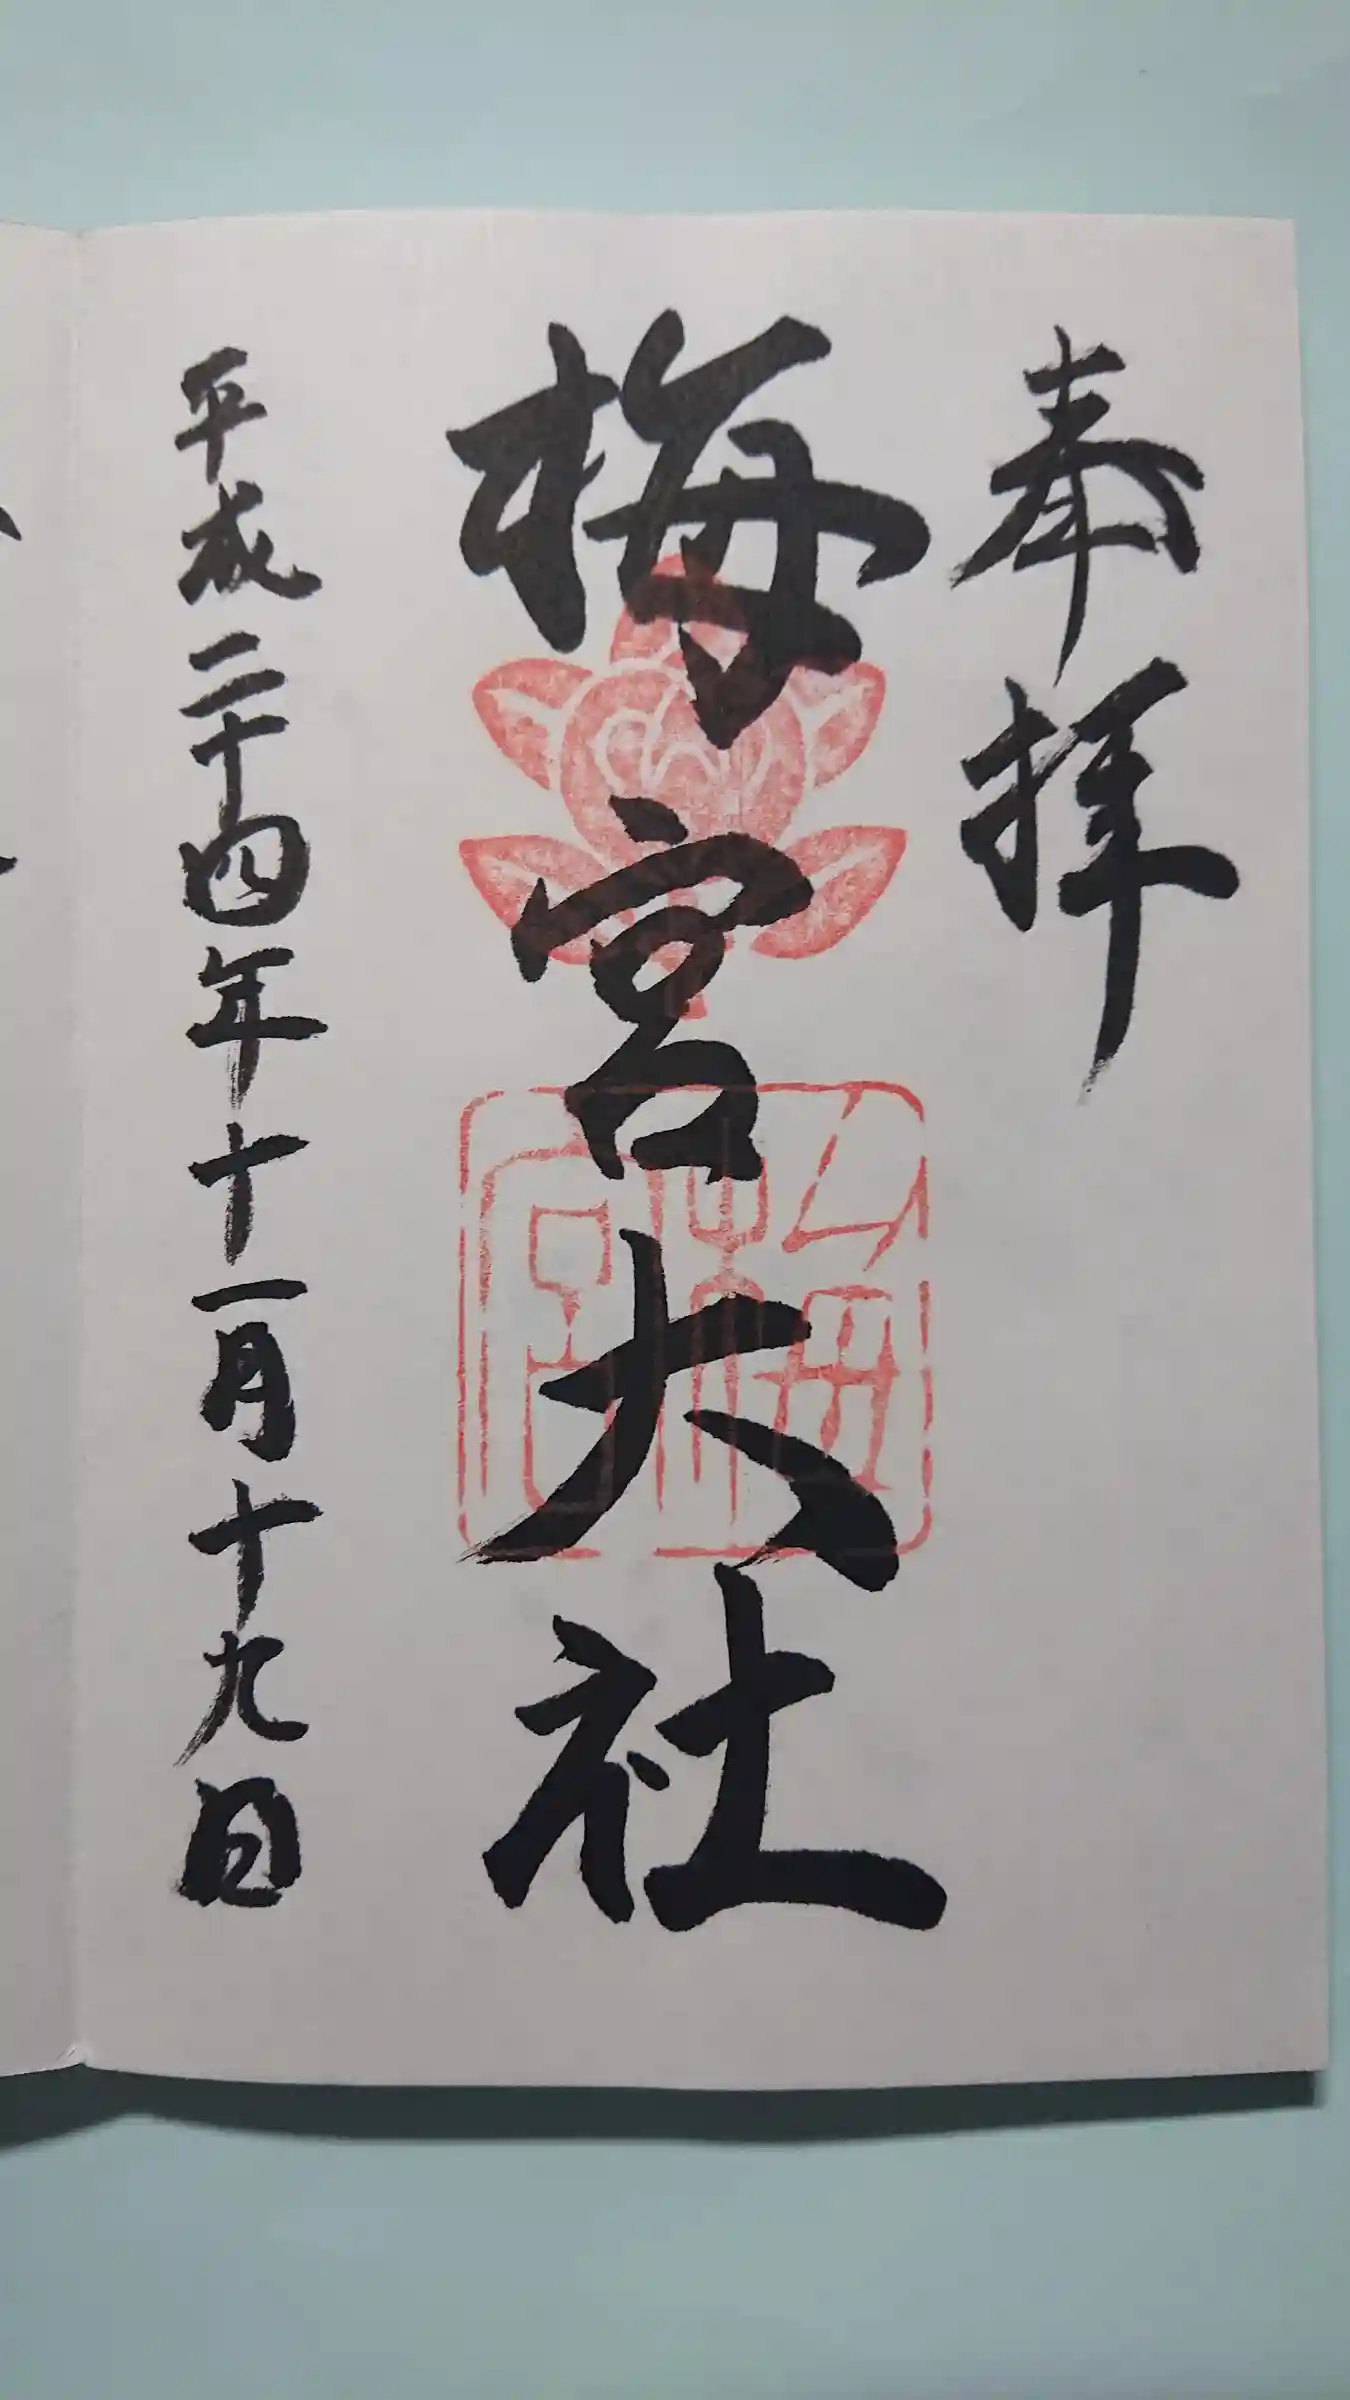 奉拝
梅宮大社
平成二十四年十一月十九日